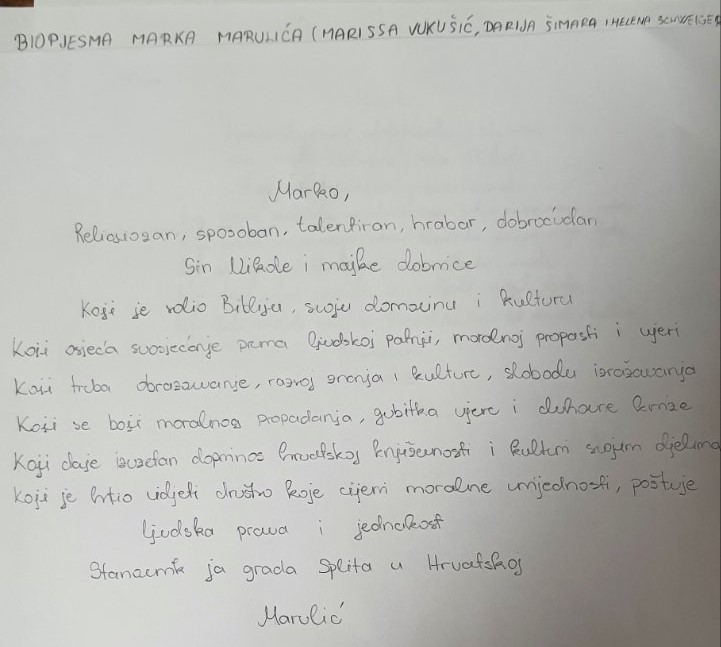 BIOPJESMA MARKA MARULIĆA (MARISSA VUKUŠIĆ, DARIJA ŠIMARA I HELENA SCHWEIGER
Marko,
Religiozan, sposoban, talentiran, hrabar, dobroćudan
Sin Nikole i majke dobrice
Koji je volio Bibliju, svoju domovinu i kulturu
Koji osjeća suosjećanje prema ljudskoj patnji, moralnoj propasti i vjeri
Koji treba obrazovanje, razvoj znanja i kulture, slobodu izražavanja
Koji se boji moralnog propadanja, gubitka vjere i duhovne krize
Koji daje izuzetan doprinos hrvatskoj književnosti i kulturi svojim djelima
Koji je htio vidjeti društvo koje cijeni moralne vrijednosti, poštuje
ljudska prava i jednakost
Stanovnik ja grada Splita u Hrvatskoj
Marulić